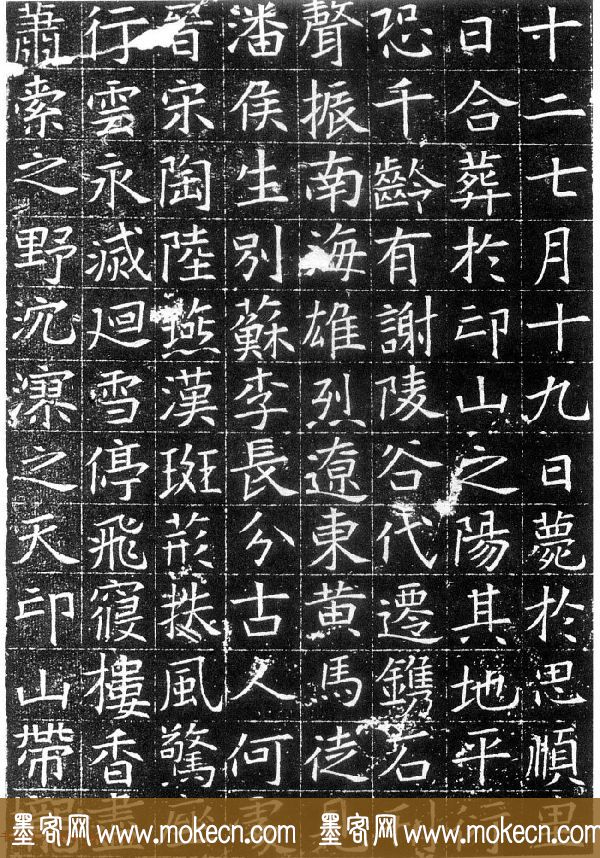 十二七月十九日薨於思順里
日合葬於卬山之陽其地平
恐千齡有謝陵谷代遷鐫石
聲振南海雄烈遼東黃馬徒
潘侯生別蘇李長分古人何
晉宋陶陸燕漢班荊扶風驚
行雲永滅廻雪停飛寢樓香
蕭索之野泬漻之天卬山帶
墨客网 www.mokecn.com 墨客网 www.mokecn.com